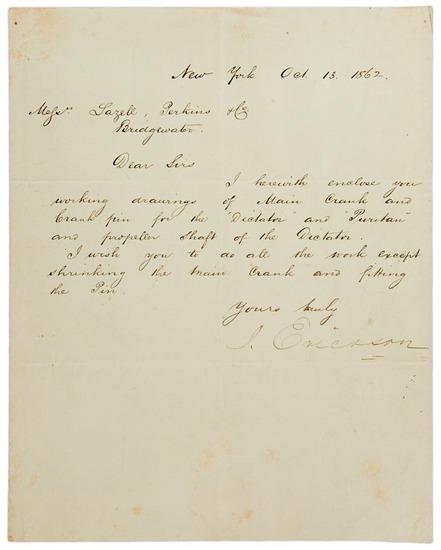 New York Oct. 13. 1862.
Messrs Lazell, Perkins & Co
Bridgewater.
Dear Sirs
I herewith enclose you
working drawings of Main Crank and
Crank pin for the "Dictator" and "Puritan"
and propeller shaft of the Dictator.
I wish you to do all the work except
shrinking the main Crank and fitting
the Pin.
Yours truly
J. Ericsson